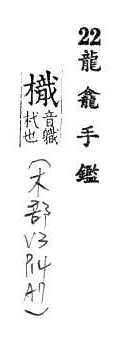 22龍龕手鑑
樴音職杙也(木部V3P14A7)